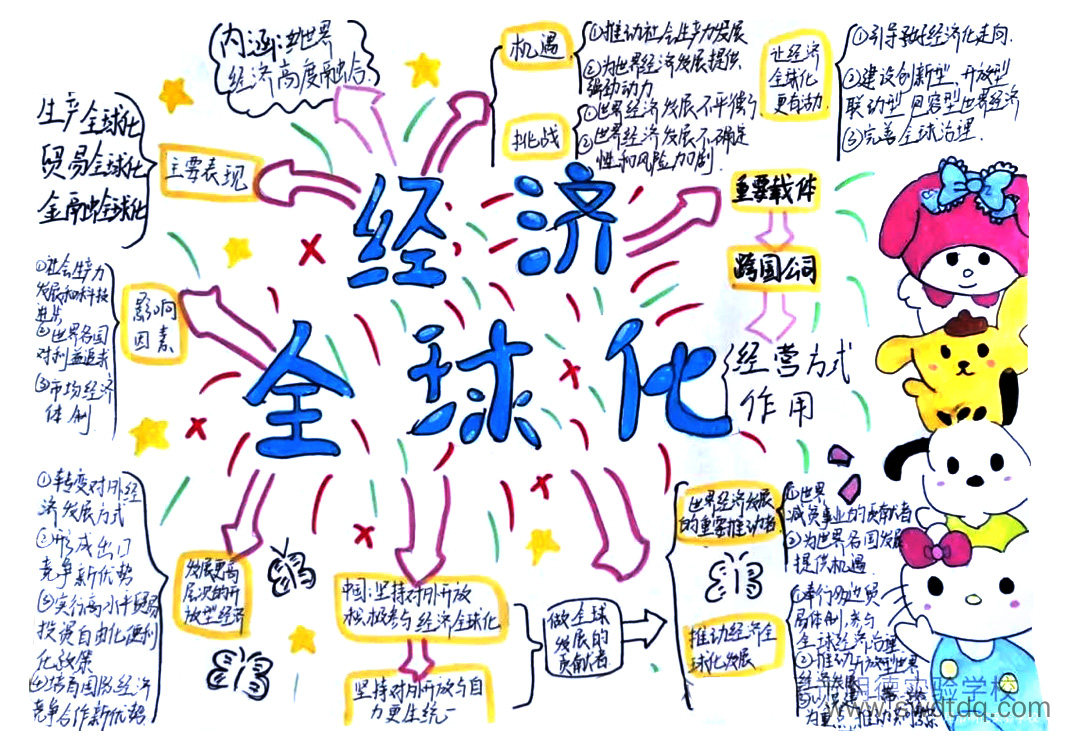 内涵:世界
经济高度融合.
机遇
①推动社会生产力发展
②为世界经济发展提供
强劲动力
挑战
①世界经济发展不平衡
②世界经济发展不确定
性和风险加剧.
让经济
全球化
更有活力
①引导好经济化走向.
②建设创新型、开放型
联动型 包容型世界经济
③完善全球治理.
生产全球化
贸易全球化
金融全球化
主要表现
经济
全球化
重要载体
跨国公司
经营方式
作用
影响
因素
①社会生产力
发展和科技
进步
②世界各国
对利益追求
③市场经济
体制
①转变对外经
济发展方式
②形成出口
竞争新优势
③实行高水平贸易
投资自由化便利
化政策
④培育国际经济
竞争合作新优势
发展更高
层次的开
放型经济
中国:坚持对外开放
积极参与经济全球化
坚持对外开放与自
力更生统一
做全球
发展的
贡献者
世界经济发展
的重要推动者
①世界
减贫事业的贡献者
②为世界各国发展
提供机遇.
推动经济全
球化发展
①奉行多边贸
易体制,参与
全球经济治理
②推动开放型世界
经济发展
为重点,推动
实验学校
www.swdtdq.com